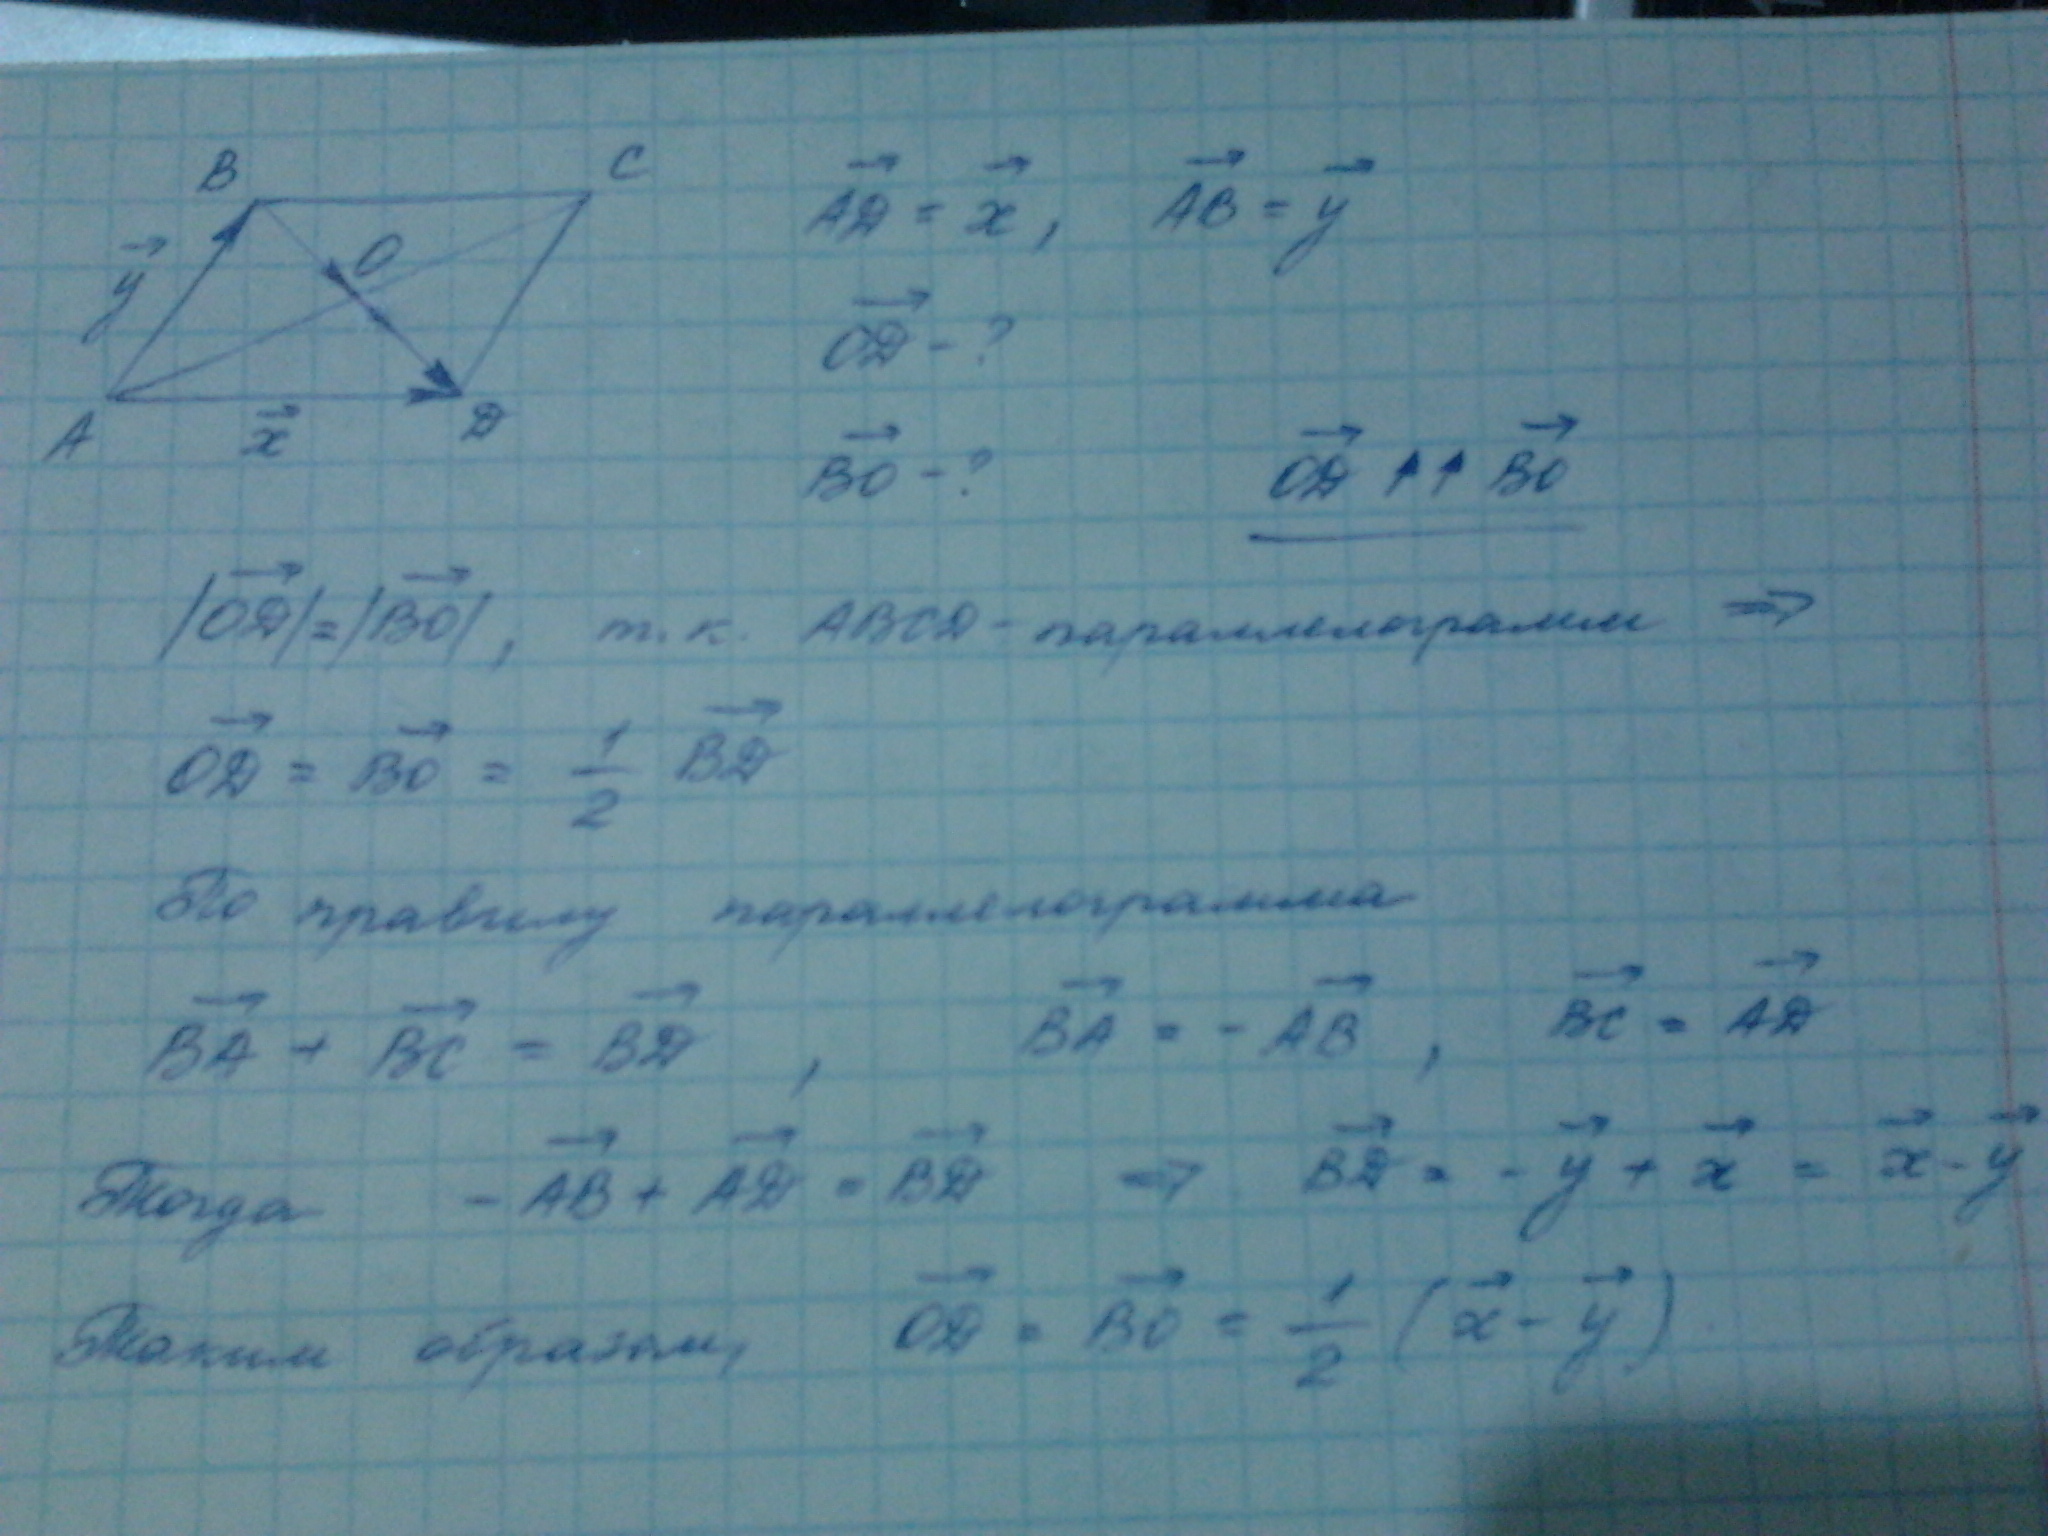 B C
y⃗ O
A x⃗ D
AD⃗ = x⃗, AB⃗ = y⃗
OD⃗ - ?
BO⃗ - ? OD⃗ ↑↑ BO⃗
|OD⃗| = |BO⃗|, т.к. ABCD - параллелограмм ⇒
OD⃗ = BO⃗ = 1/2 BD⃗
По правилу параллелограмма
BA⃗ + BC⃗ = BD⃗, BA⃗ = - AB⃗, BC⃗ = AD⃗
Тогда - AB⃗ + AD⃗ = BD⃗ ⇒ BD⃗ = - y⃗ + x⃗ = x⃗ - y⃗
Таким образом, OD⃗ = BO⃗ = 1/2 (x⃗ - y⃗)